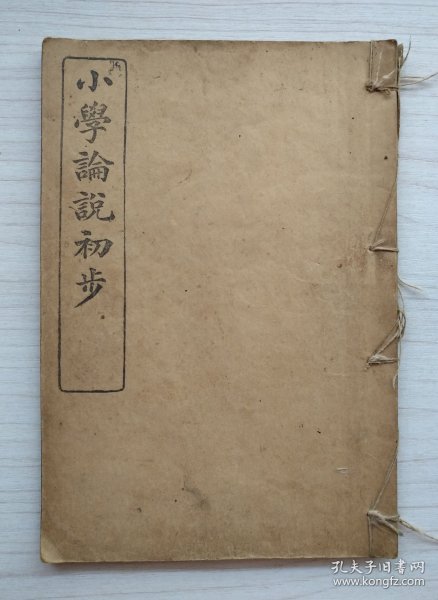 小學論説初步
孔夫子旧书网
www.kongfz.com